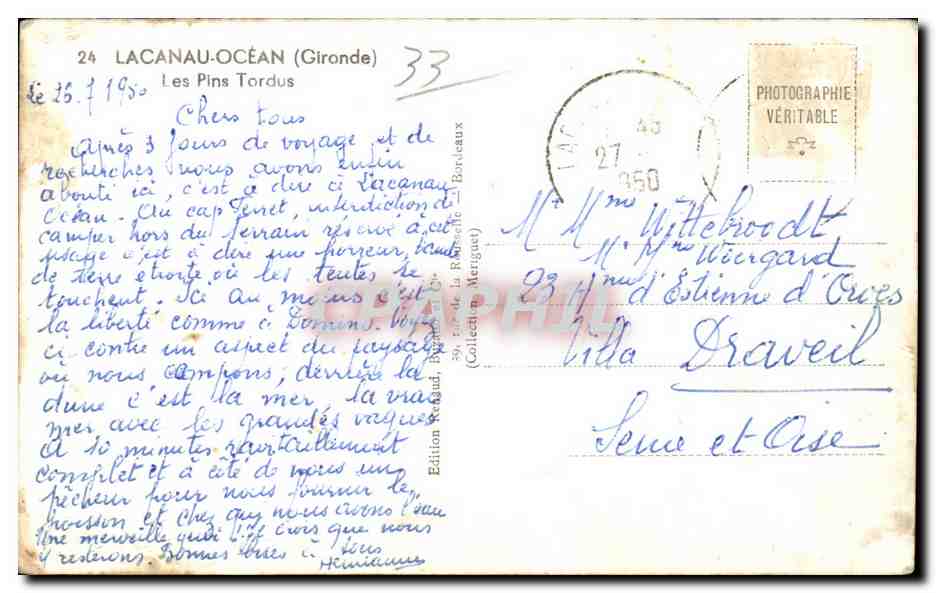 24 LACANAU-OCÉAN (Gironde)
Les Pins Tordus
33
Le 26.7 1950
Chers tous
Après 3 jours de voyage et de
recherches nous avons enfin
abouti ici, c'est à dire à Lacanau
Océan. Au cap Ferret, interdiction de
camper hors du terrain réservé à cet
usage c'est à dire une horreur, bande
de terre étroite où les tentes se
touchent. Ici au moins c'est
la liberté comme à Domino. Voyez
ci contre un aspect du paysage
où nous campons, derrière la
dune c'est la mer, la vraie
mer avec les grandes vagues
A 10 minutes ravitaillement
complet et à côté de nous un
pêcheur pour nous fournir le
poisson et chez qui nous avons l'eau
Une merveille quoi! Je crois que nous
y resterons. Bonnes bises à tous
Edition Renaud, Buzaud et Cie
59, rue de la Rousselle - Bordeaux
(Collection Meriguet)
27
950
PHOTOGRAPHIE
VÉRITABLE
Mr Mme Wittebroodt
Mr Mme Wiergard
23 d'Estienne d'Orves
Villa Draveil
Seine et Oise
CPAPHIL